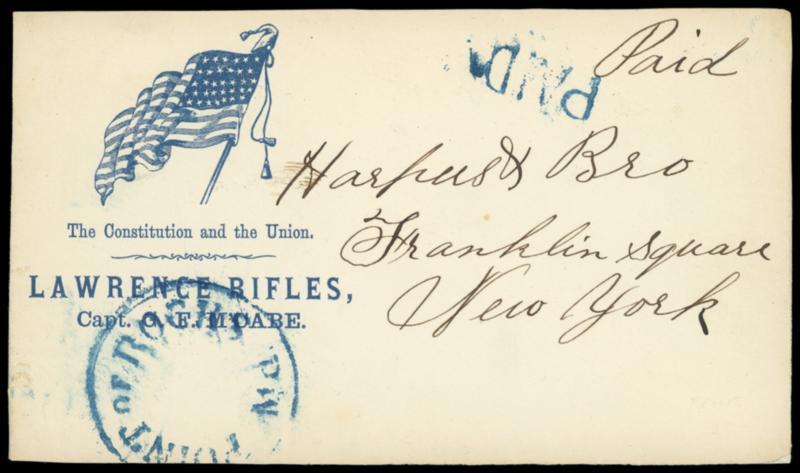 Paid
PAID
Harpers & Bro
Franklin Square
New York
The Constitution and the Union.
LAWRENCE RIFLES,
Capt. G. F. M'CABE.
POINT OF ROCKS MD